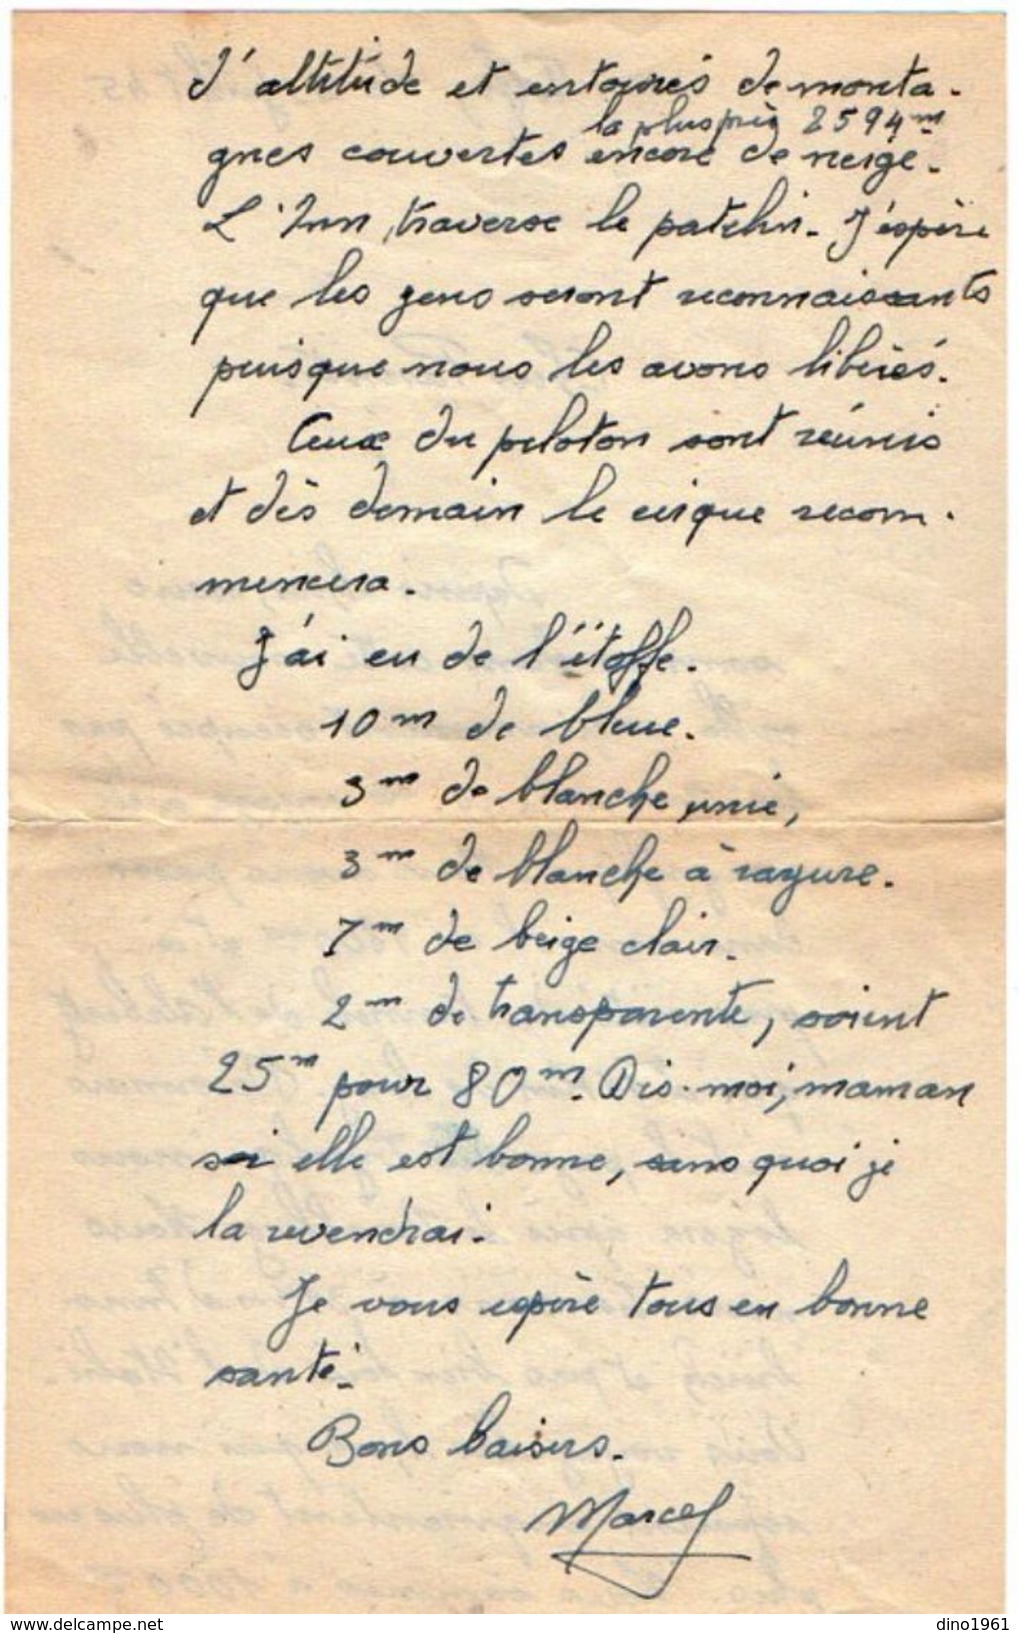 d'altitude et entourés de monta-
la plus près 2594m
gnes couvertes encore de neige.
L'Inn traverse le patelin. J'espère
que les gens seront reconnaissants
puisque nous les avons libérés.
Ceux du peloton sont réunis
et dès demain le cirque recom-
mencera.
J'ai eu de l'étoffe.
10m de bleue.
3m de blanche unie,
3m de blanche à rayure.
7m de beige clair.
2m de transparente, soient
25m pour 80m. Dis-moi, maman
si elle est bonne, sans quoi je
la revendrai.
Je vous espère tous en bonne
santé.
Bons baisers.
Marcel
delcampe.net
dino1961